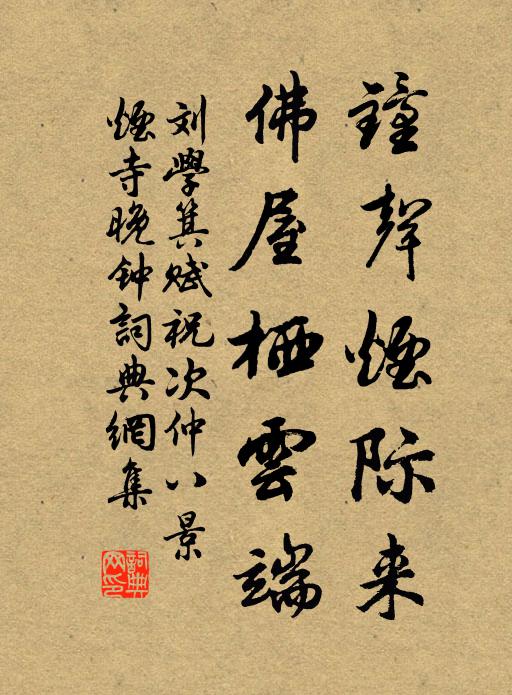 鐘聲煙际来
佛屋栖雲端
刘學箕赋祝次仲八景
煙寺晚钟詞典網集
詞典网印